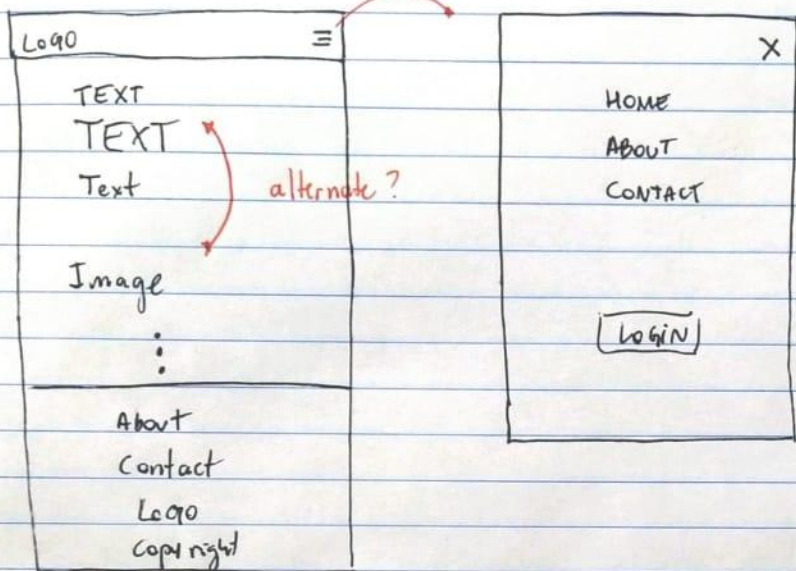 Logo ☰
TEXT
TEXT
Text
alternate?
Image
About
Contact
Logo
Copyright
X
HOME
ABOUT
CONTACT
LOGIN